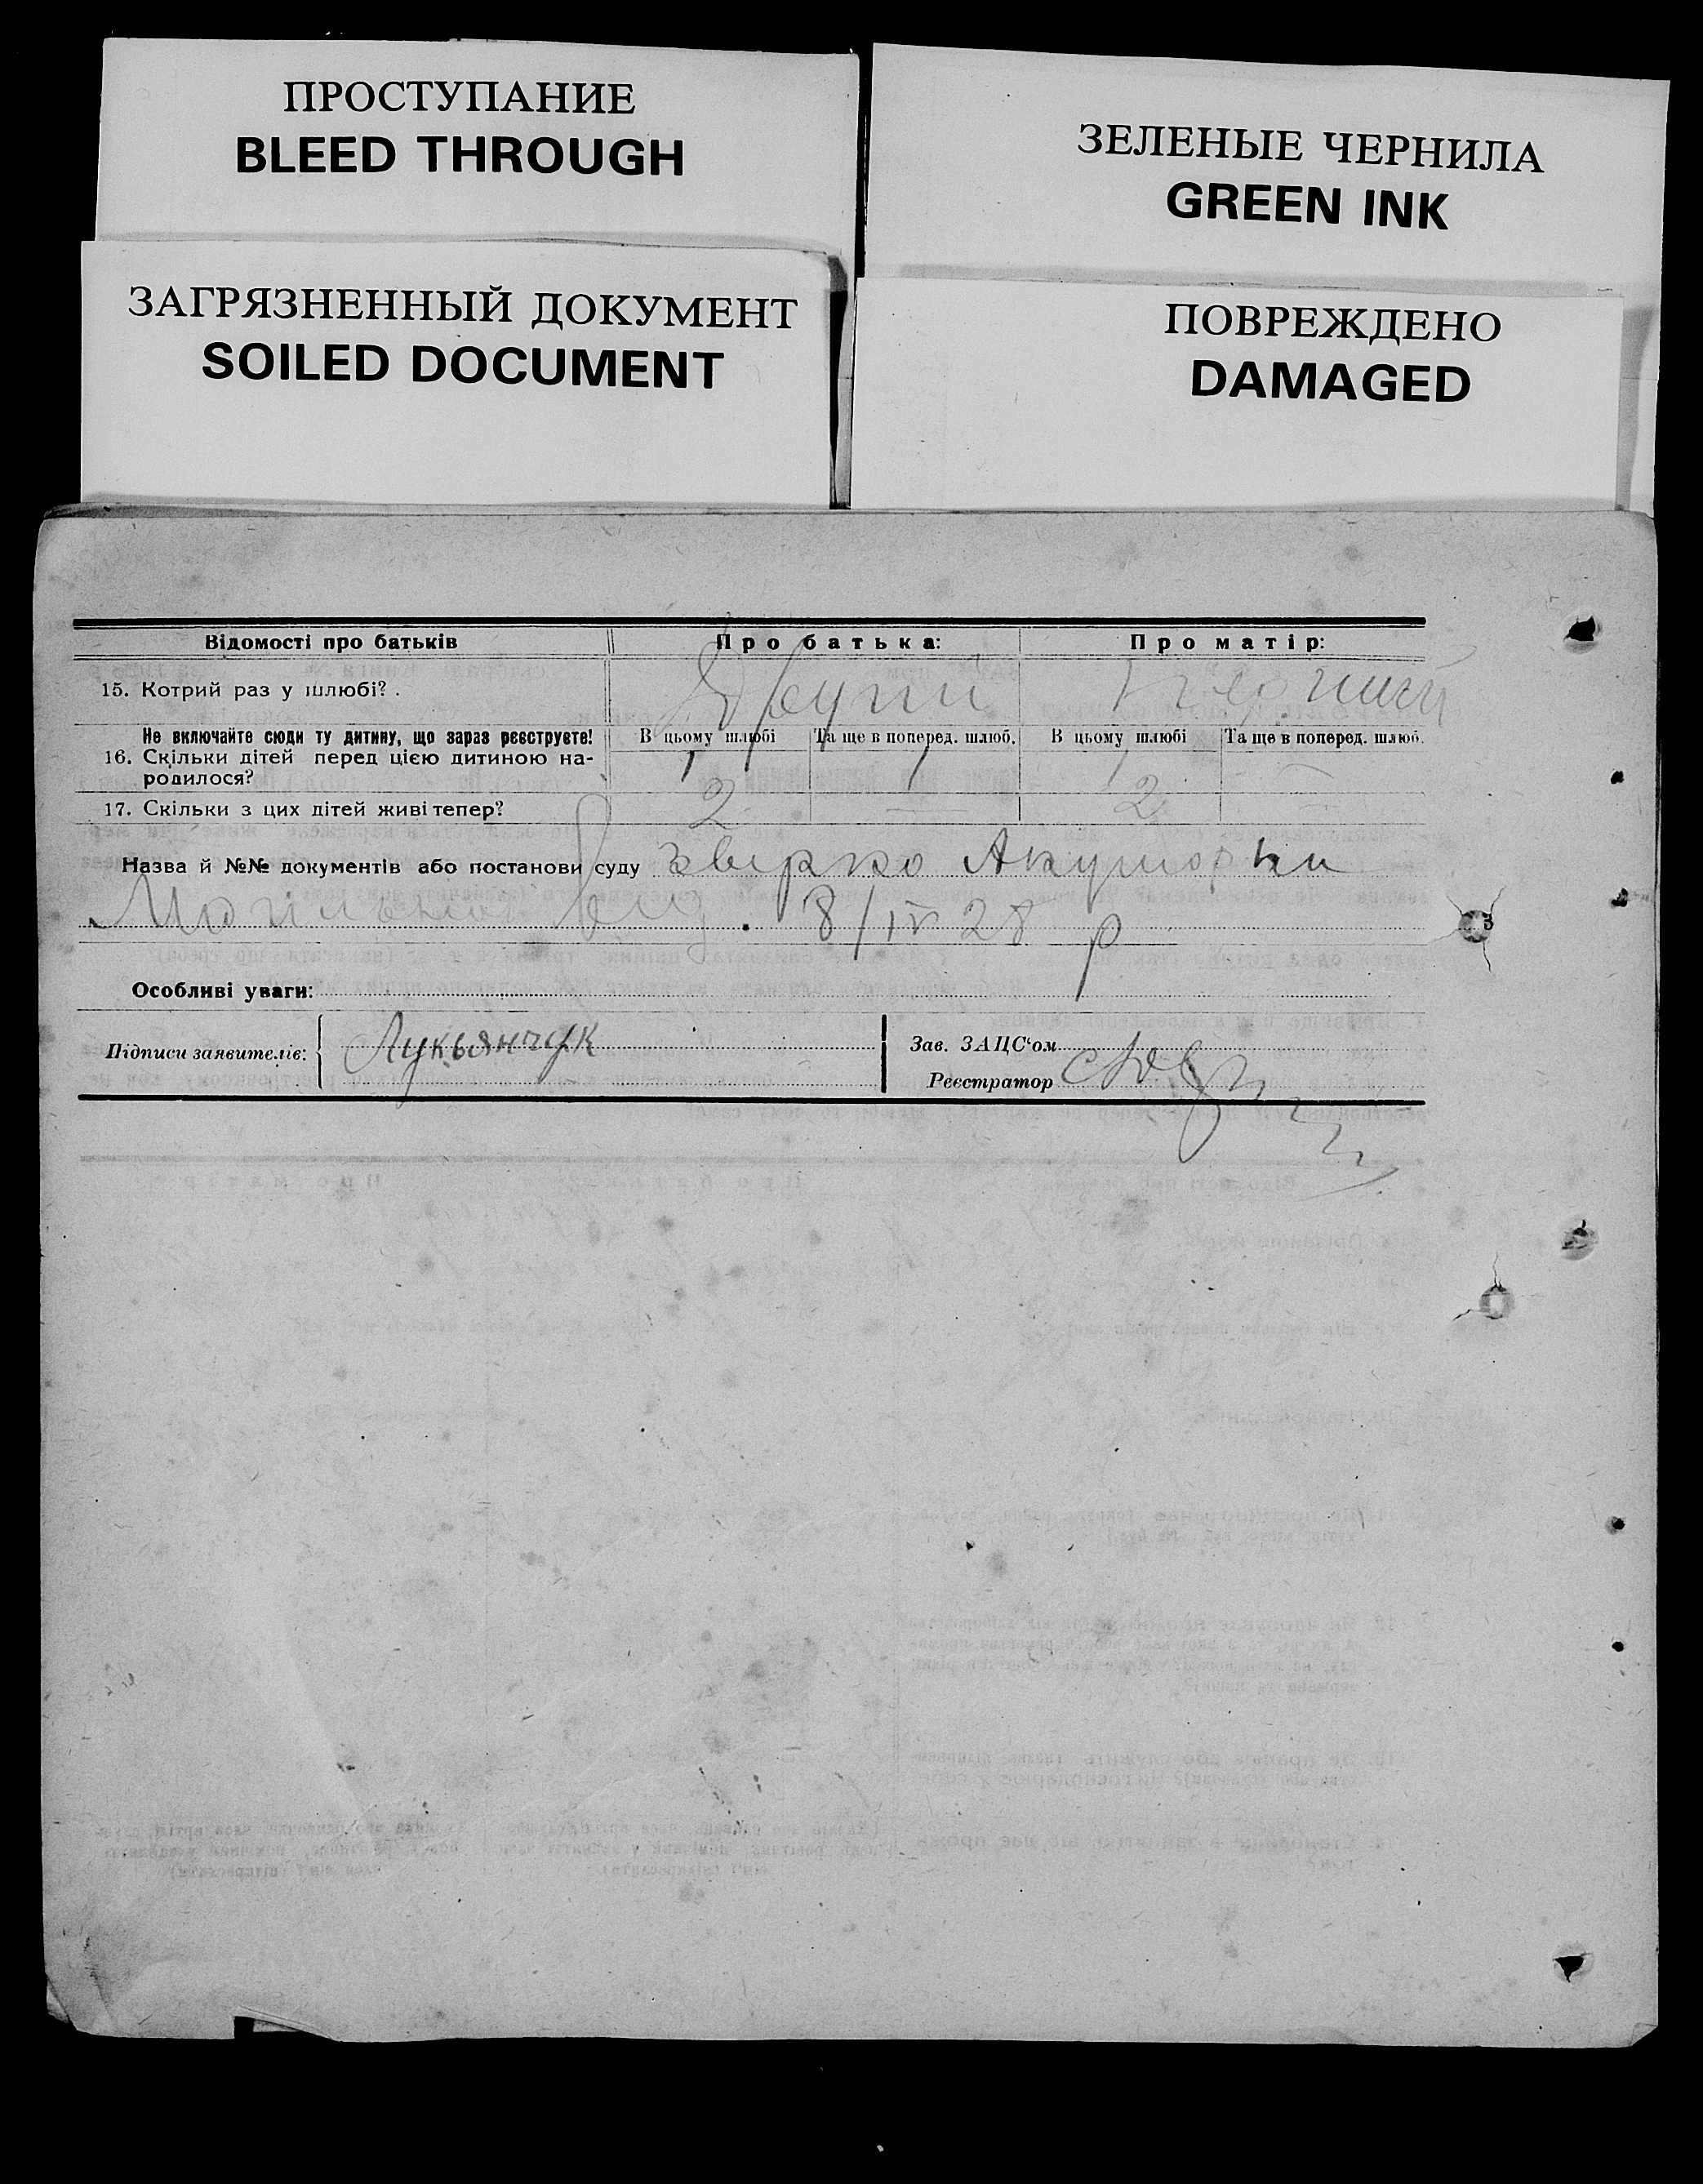 ПРОСТУПАНИЕ
BLEED THROUGH
ЗЕЛЕНЫЕ ЧЕРНИЛА
GREEN INK
ЗАГРЯЗНЕННЫЙ ДОКУМЕНТ
SOILED DOCUMENT
ПОВРЕЖДЕНО
DAMAGED
Відомості про батьків Про батька: Про матір:
15. Котрий раз у шлюбі? . Другий Перший
Не включайте сюди ту дитину, що зараз реєструєте! В цьому шлюбі Та ще в поперед. шлюб. В цьому шлюбі Та ще в поперед. шлюб.
16. Скільки дітей перед цією дитиною на-
родилося?
17. Скільки з цих дітей живі тепер? 2 — 2 —
Назва й №№ документів або постанови суду Акушорки
8/IV 28 р
Особливі уваги:
Підписи заявителів: Лукьянчук
Зав. ЗАЦС'ом
Реєстратор